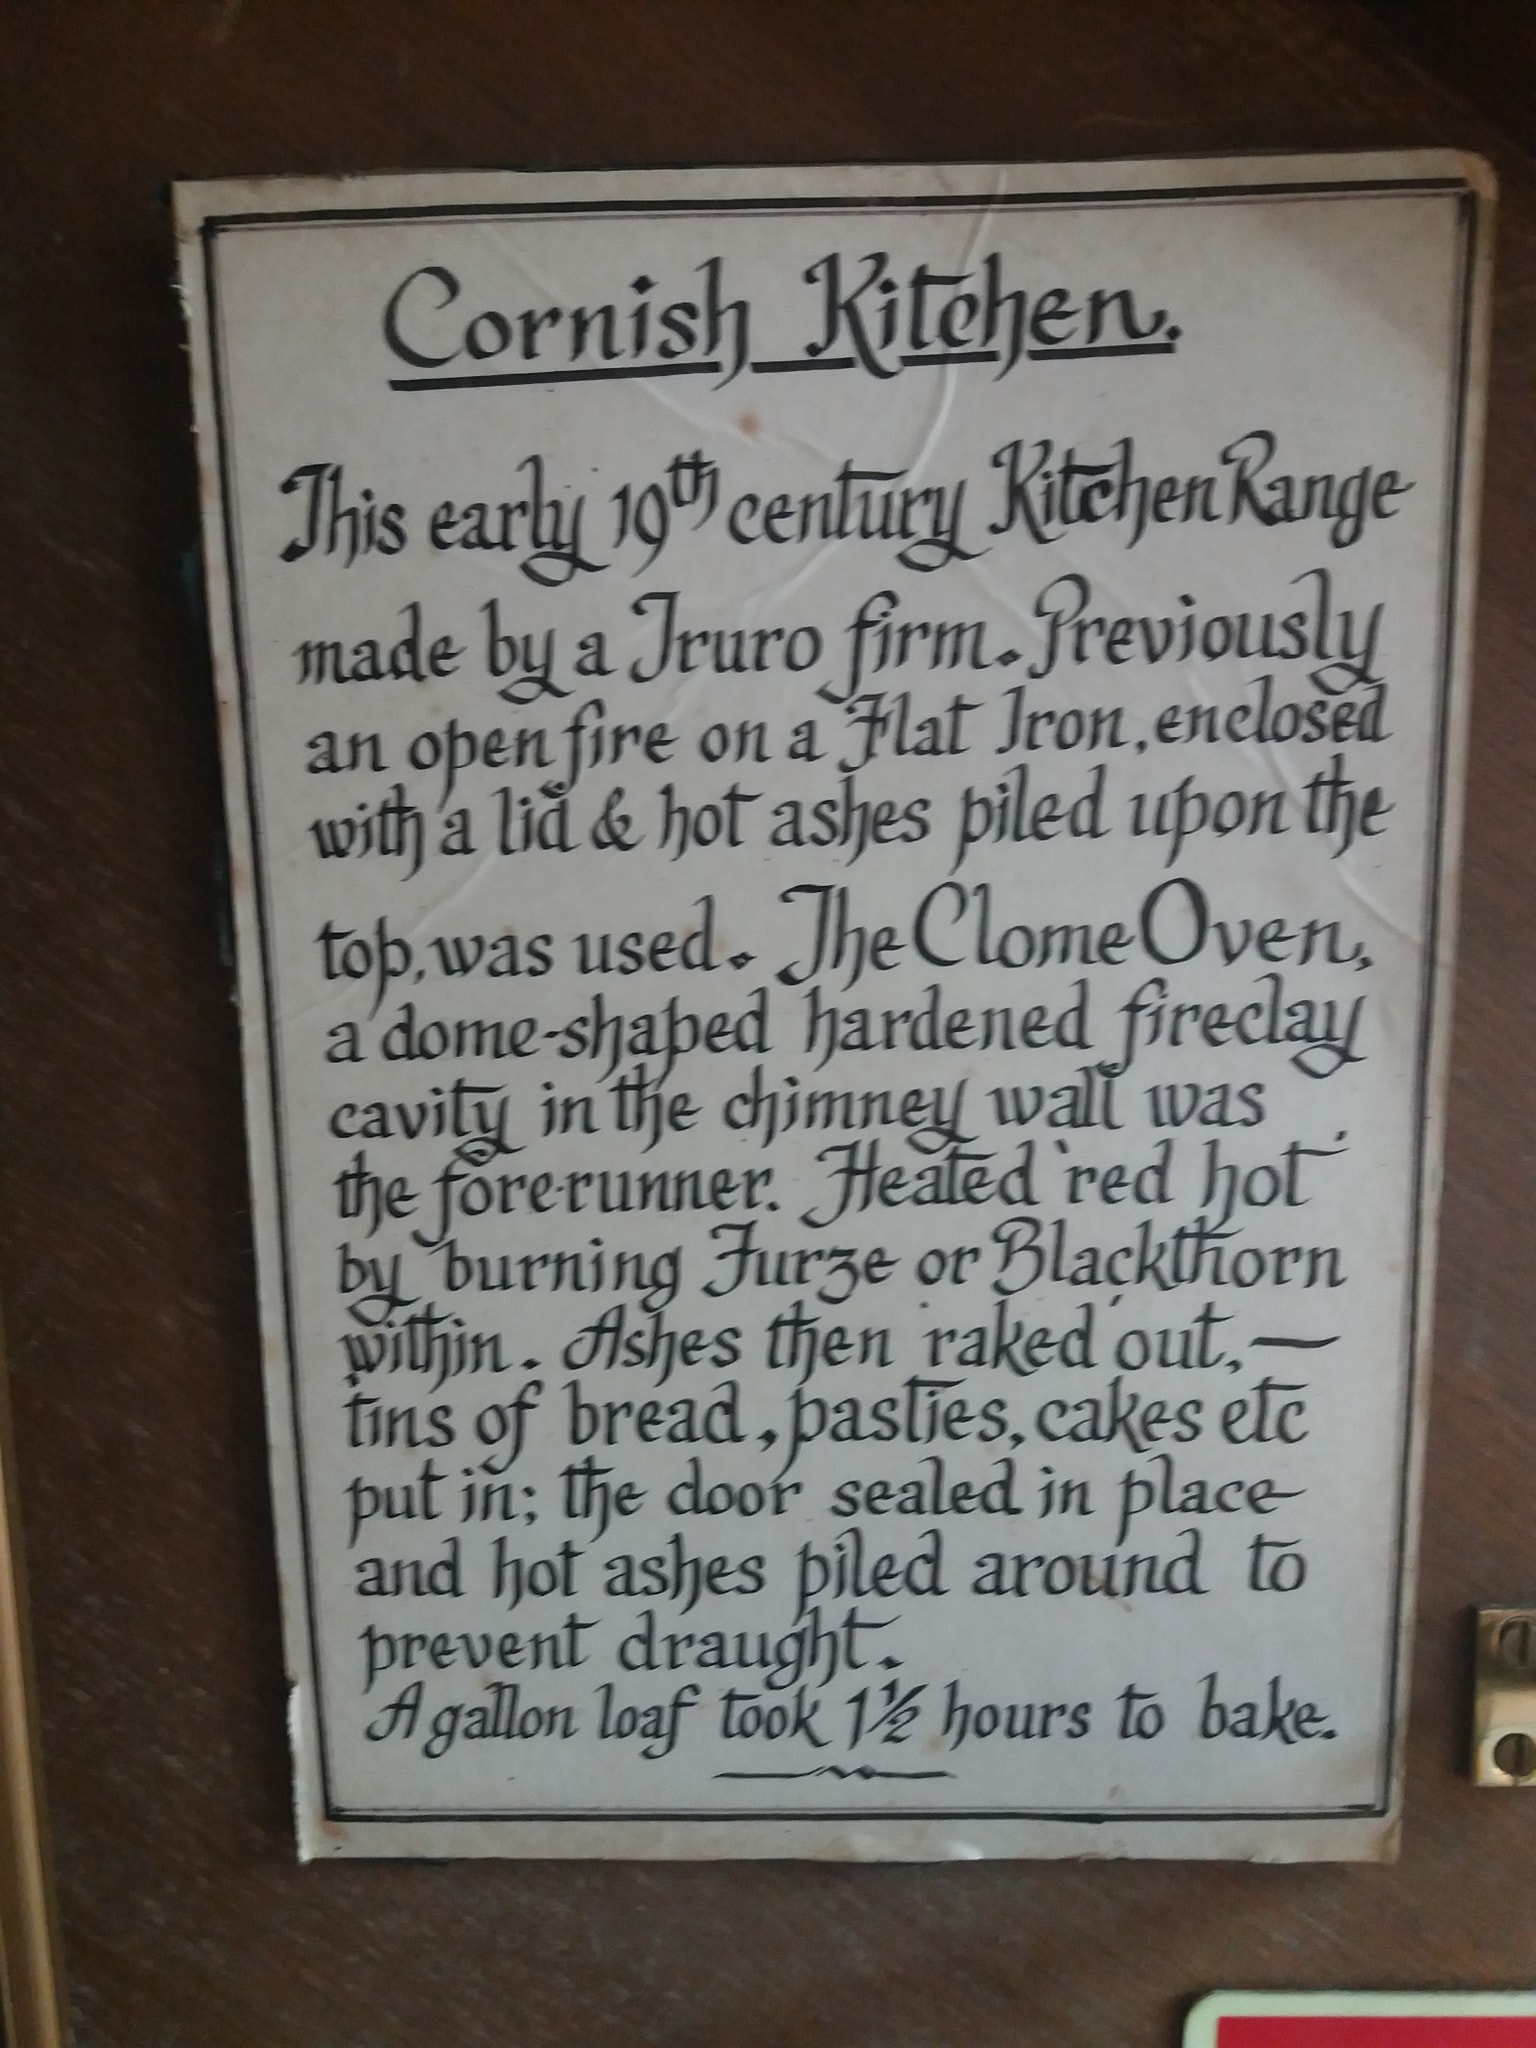 Cornish Kitchen.
This early 19th century Kitchen Range
made by a Truro firm. Previously
an open fire on a Flat Iron, enclosed
with a lid & hot ashes piled upon the
top, was used. The Clome Oven,
a dome-shaped hardened fireclay
cavity in the chimney wall was
the fore-runner. Heated 'red hot'
by burning Furze or Blackthorn
within. Ashes then raked out, —
tins of bread, pasties, cakes etc
put in; the door sealed in place
and hot ashes piled around to
prevent draught.
A gallon loaf took 1½ hours to bake.